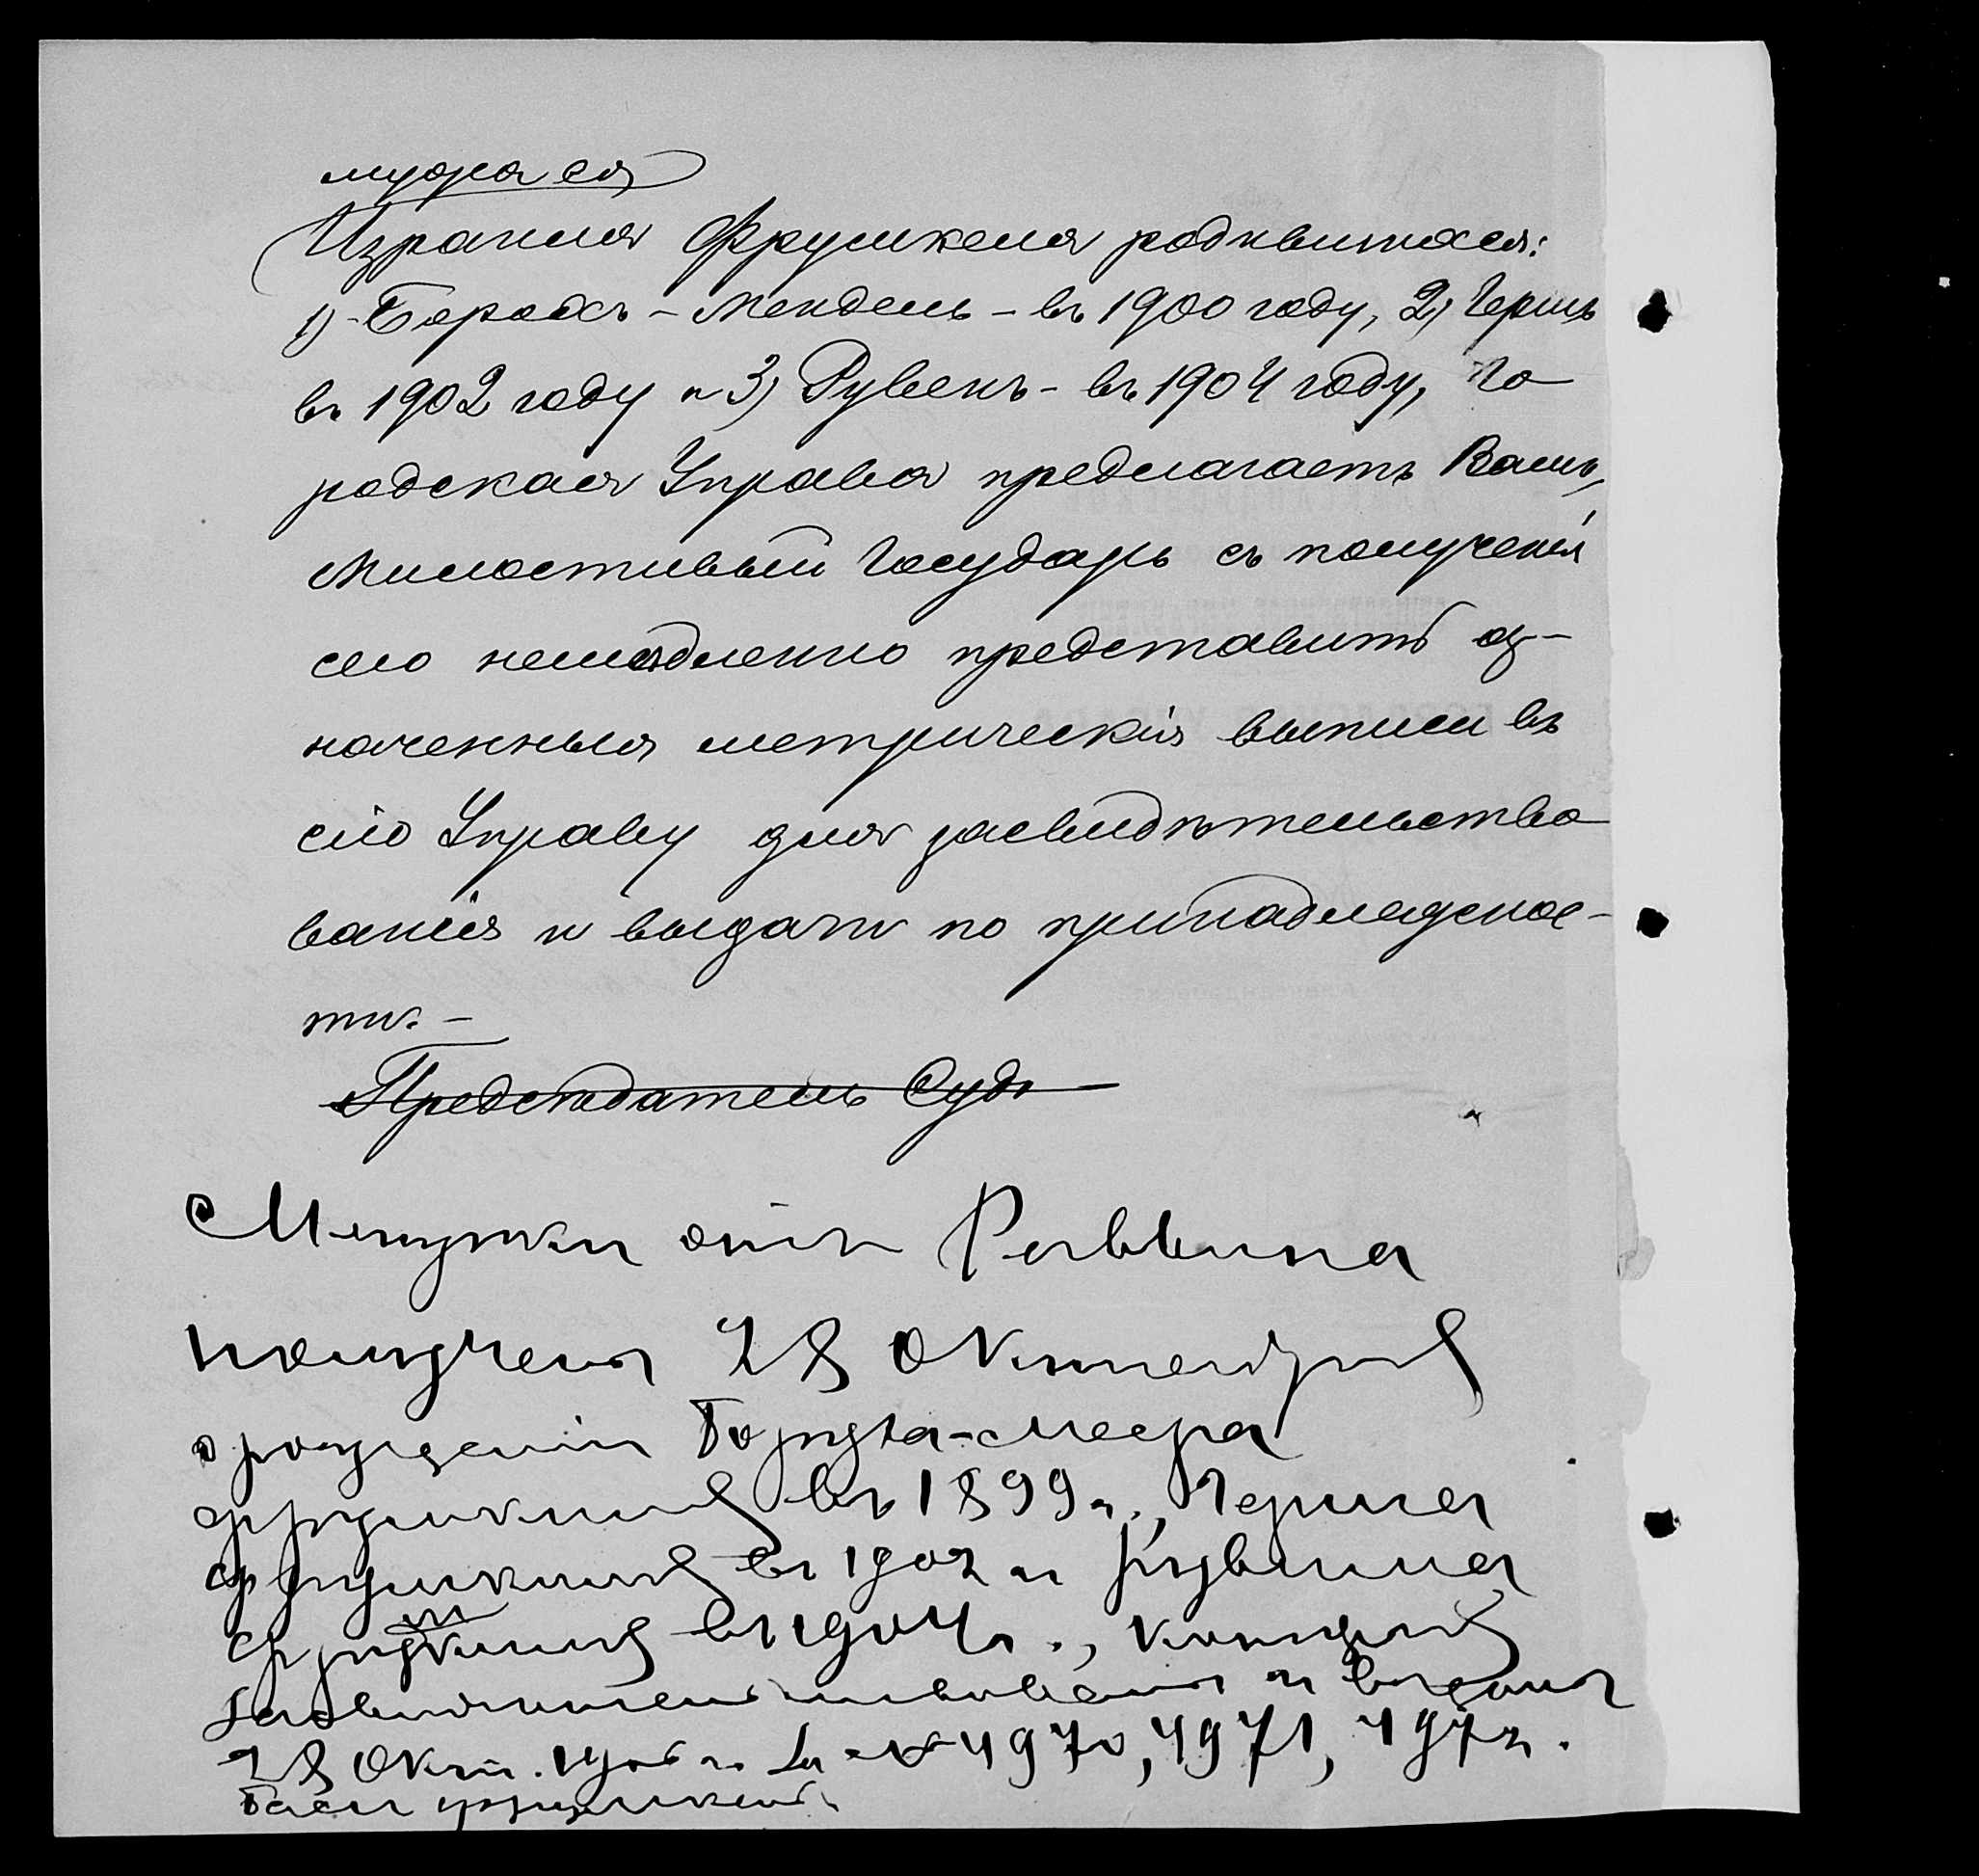 мужа ея
Израиля Фрумкеля родившихся:
1) Борохъ-Мендель - въ 1900 году, 2) Гершъ
въ 1902 году и 3) Рувенъ - въ 1904 году, Го-
родская Управа предлагаетъ Вамъ,
Милостивый Государь съ полученія
сего немедленно представить оз-
наченныя метрическія выписи въ
сію Управу для засвидѣтельство
ванія и выдачи по принадлежнос-
ти. -
Предсѣдатель Суда
Метрики отъ Раввина
получены 28 Октября
о рожденіи Боруха-Меера
Фрумкина въ 1899 г., Герша
Фрумкина въ 1902 и Рувина
въ 1904 г., которыя
засвидѣтельствованы и выданы
28 Окт. 190 г. за № 4970, 4971, 4972.